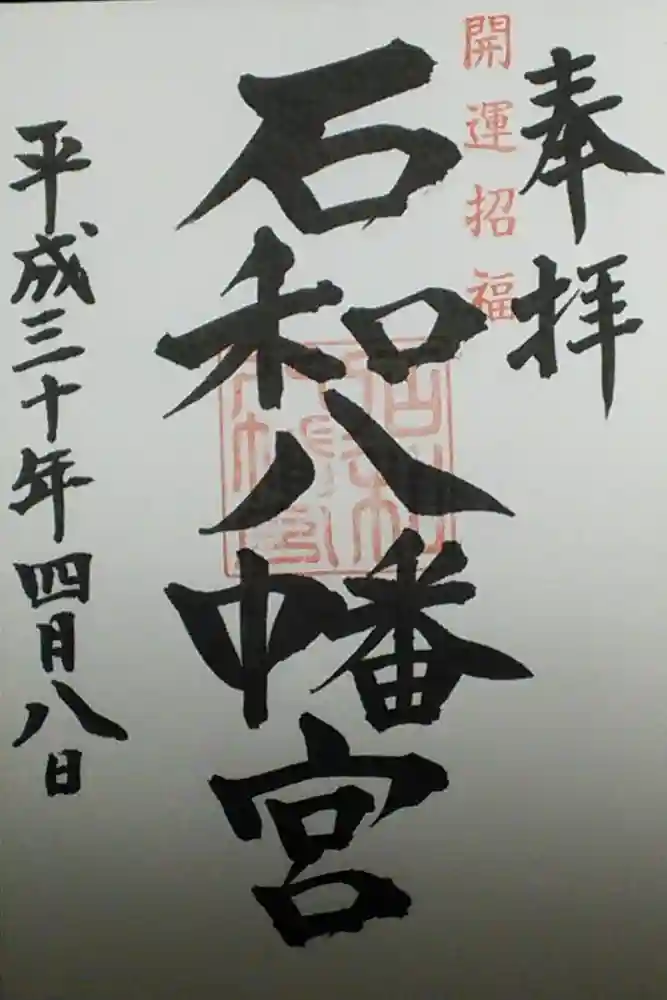 奉拝
開運招福
石和八幡宮
平成三十年四月八日